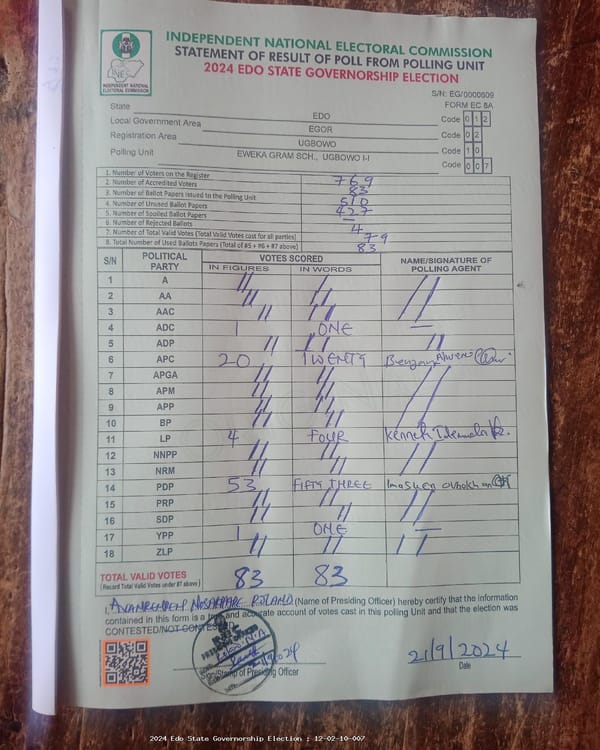 INDEPENDENT NATIONAL ELECTORAL COMMISSION
STATEMENT OF RESULT OF POLL FROM POLLING UNIT
2024 EDO STATE GOVERNORSHIP ELECTION
INEC
INDEPENDENT NATIONAL ELECTORAL COMMISSION
S/N: EG/0000609
FORM EC 8A
State EDO Code 0 1 2
Local Government Area EGOR Code 0 2
Registration Area UGBOWO Code 1 0
Polling Unit EWEKA GRAM SCH., UGBOWO I-I Code 0 0 7
1. Number of Voters on the Register 769
2. Number of Accredited Voters 83
3. Number of Ballot Papers Issued to the Polling Unit 510
4. Number of Unused Ballot Papers 427
5. Number of Spoiled Ballot Papers —
6. Number of Rejected Ballots 4
7. Number of Total Valid Votes (Total Valid Votes cast for all parties) 79
8. Total Number of Used Ballots Papers (Total of #5 + #6 + #7 above) 83
S/N POLITICAL PARTY VOTES SCORED NAME/SIGNATURE OF POLLING AGENT
IN FIGURES IN WORDS
1 A // // //
2 AA // //
3 AAC // //
4 ADC 1 ONE —
5 ADP // // //
6 APC 20 TWENTY
7 APGA // // //
8 APM // //
9 APP // // //
10 BP // //
11 LP 4 FOUR Kenneth
12 NNPP // // //
13 NRM // //
14 PDP 53 FIFTY THREE
15 PRP // // //
16 SDP // //
17 YPP 1 ONE —
18 ZLP // // //
TOTAL VALID VOTES 83 83
(Record Total Valid Votes under #7 above)
I, ROLAND (Name of Presiding Officer) hereby certify that the information
contained in this form is a true and accurate account of votes cast in this polling Unit and that the election was
CONTESTED/NOT CONTESTED
21/9/2024
Sign/Stamp of Presiding Officer Date
2024 Edo State Governorship Election : 12-02-10-007